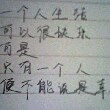 一个人生活
可以很快乐
可是
只有一个人
便不能说是喜